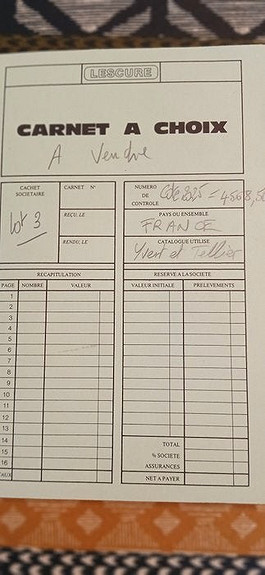 LESCURE
CARNET A CHOIX
A Vendre
CACHET SOCIETAIRE
lot 3
CARNET N°
REÇU, LE
RENDU, LE
NUMERO DE CONTROLE
PAYS OU ENSEMBLE
FRANCE
CATALOGUE UTILISE
Yvert et Tellier
RECAPITULATION
PAGE NOMBRE VALEUR
1
2
3
4
5
6
7
8
9
10
11
12
13
14
15
16
RESERVE A LA SOCIETE
VALEUR INITIALE PRELEVEMENTS
TOTAL
% SOCIETE
ASSURANCES
NET A PAYER